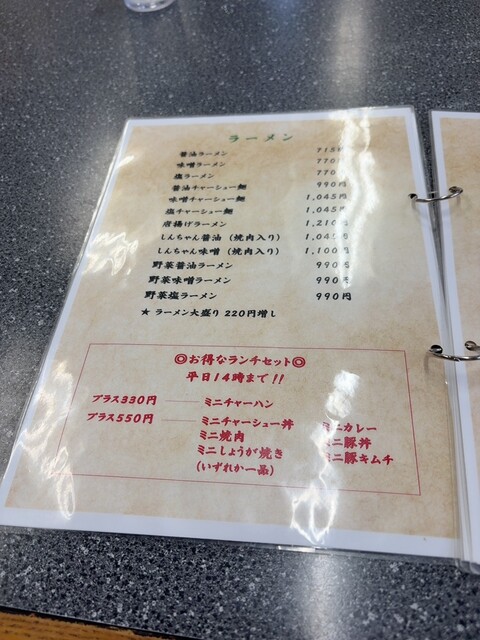 ラーメン
醤油ラーメン 715円
味噌ラーメン 770円
塩ラーメン 770
醤油チャーシュー麺 990円
味噌チャーシュー麺 1,045円
塩チャーシュー麺 1,045円
唐揚げラーメン 1,210円
しんちゃん醤油（焼肉入り） 1,045円
しんちゃん味噌（焼肉入り） 1,100円
野菜醤油ラーメン 990円
野菜味噌ラーメン 990円
野菜塩ラーメン 990円
★ ラーメン大盛り 220円増し
◎お得なランチセット◎
平日14時まで!!
プラス330円 ミニチャーハン
プラス550円 ミニチャーシュー丼 ミニカレー
ミニ焼肉 ミニ豚丼
ミニしょうが焼き ミニ豚キムチ
(いずれか一品)